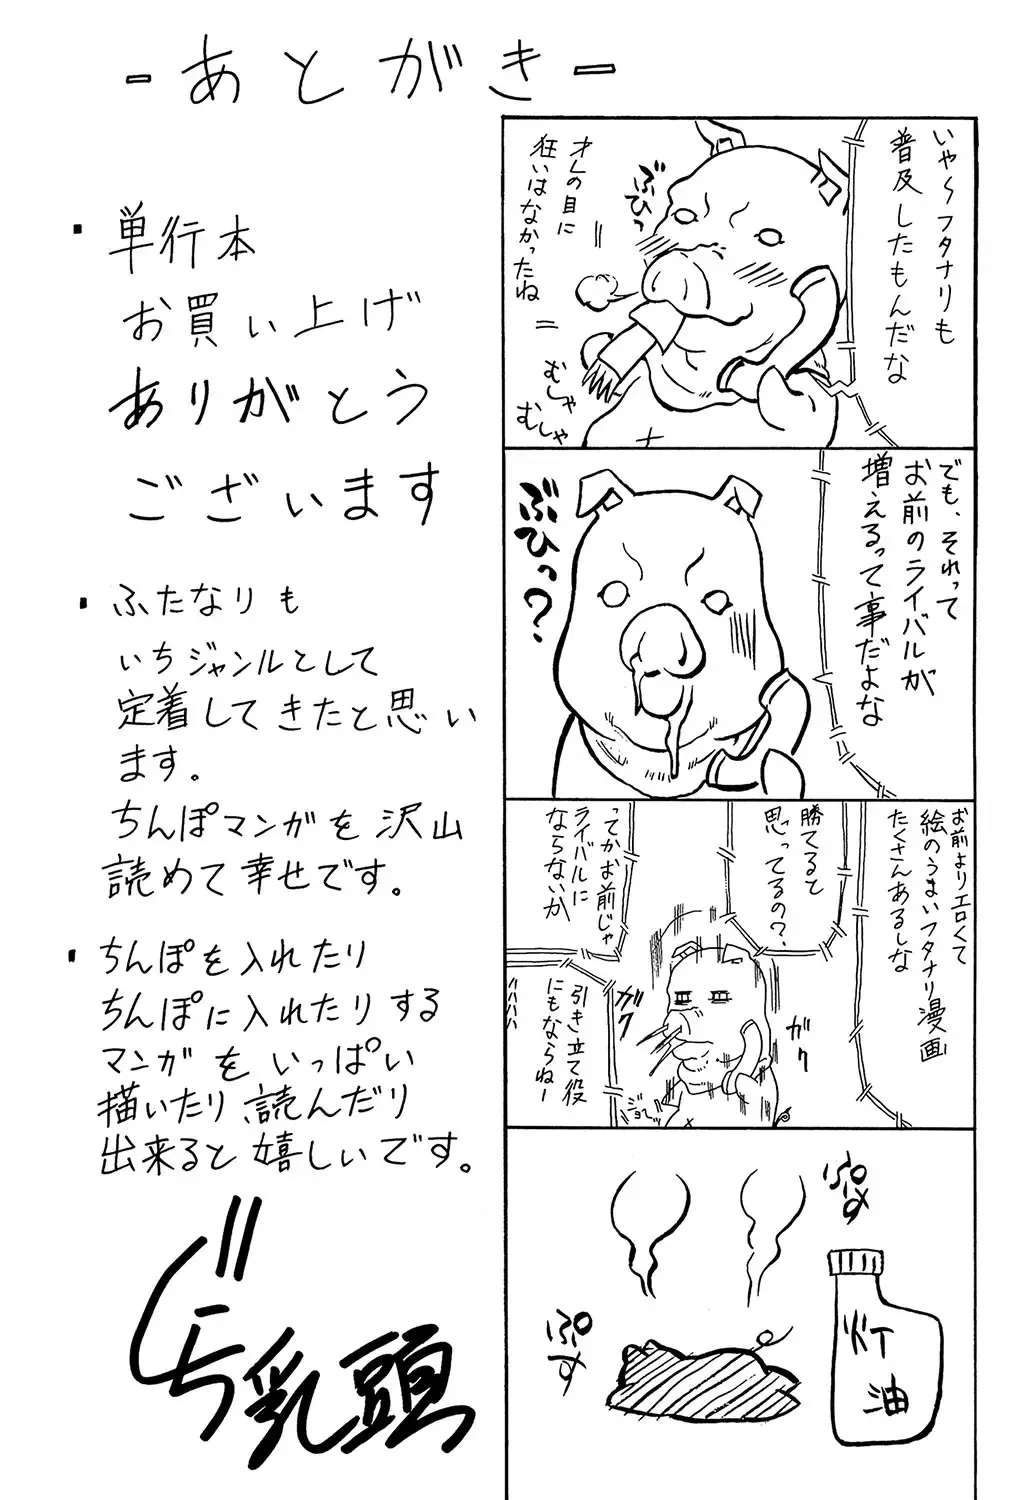 -あとがき-
・単行本
お買い上げ
ありがとう
ございます
・ふたなりも
いちジャンルとして
定着してきたと思い
ます。
ちんぽマンガを沢山
読めて幸せです。
・ちんぽを入れたり
ちんぽに入れたりする
マンガをいっぱい
描いたり、読んだり
出来ると嬉しいです。
乳頭
いや〜フタナリも
普及したもんだな
ぶひっ
オレの目に
狂いはなかったね
むしゃ
むしゃ
でも、それって
お前のライバルが
増えるって事だよな
ぶひっ?
お前よりエロくて
絵のうまいフタナリ漫画
たくさんあるしな
勝てると
思ってるの?
ってかお前じゃ
ライバルに
ならないか
引き立て役
にもならねー
ハハハハ
ガク
ガク
ジョビ
ぷす
ぷす
灯油